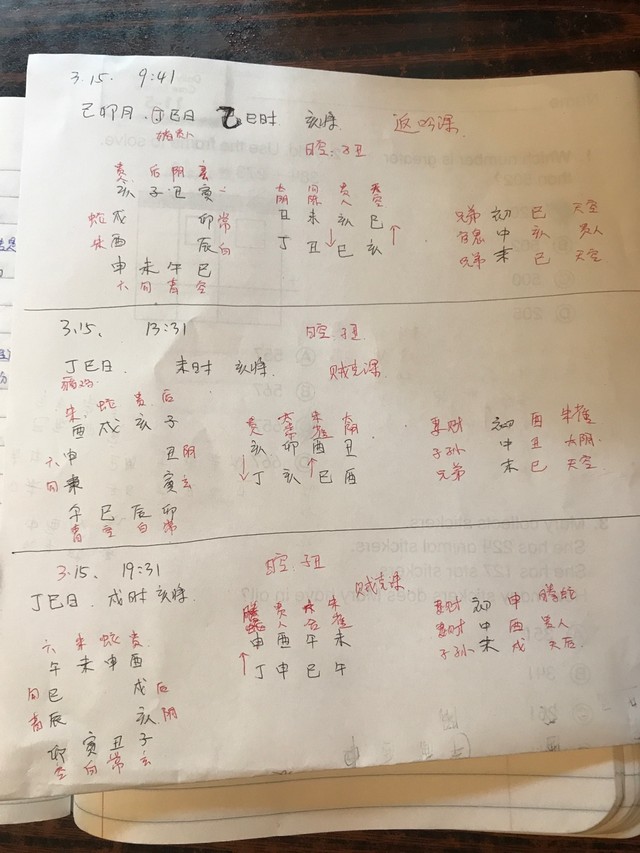 3.15. 9:41
己卯月. 丁巳日 乙巳时 亥将. 返吟课.
日空:子丑
贵人 后 阴 玄
亥 子 丑 寅
太阴 勾陈 贵人 天空
丑 未 亥 巳
丁 丑 ↓ 巳 亥 ↑
蛇 戌 卯 常
朱 酉 辰 白
申 未 午 巳
六 勾 青 空
兄弟 初 巳 天空
官鬼 中 亥 贵人
兄弟 末 巳 天空
3.15、 13:31 日空:子丑
丁巳日. 未时 亥将. 贼克课
朱 蛇 贵 后
酉 戌 亥 子
六 申 丑 阴
勾 未 寅 玄
午 巳 辰 卯
青 空 白 常
贵人 太常 朱雀 太阴
亥 卯 酉 丑
↓ 丁 亥 ↑ 巳 酉
妻财 初 酉 朱雀
子孙 中 丑 太阴
兄弟 末 巳 天空
3.15、 19:31 日空:子丑
丁巳日. 戌时 亥将. 贼克课
六 朱 蛇 贵
午 未 申 酉
勾 巳 戌 后
青 辰 亥 阴
卯 寅 丑 子
空 白 常 玄
腾蛇 贵人 六合 朱雀
申 酉 午 未
↑ 丁 申 巳 午
妻财 初 申 腾蛇
妻财 中 酉 贵人
子孙 末 戌 天后